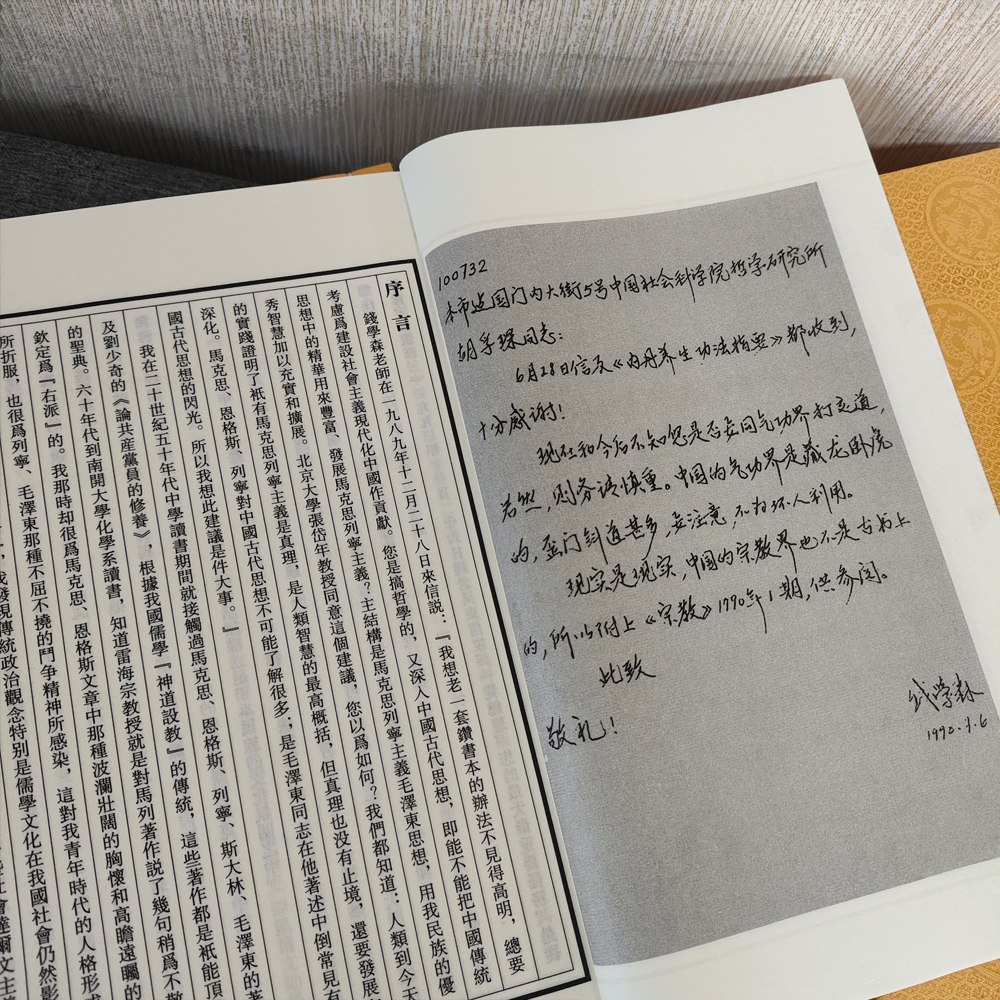 100732
本市建国门内大街5号中国社会科学院哲学研究所
胡孚琛同志：
6月28日信及《内丹养生功法指要》都收到，
十分感谢！
现在和今后不知您是否要同气功界打交道，
若然，则务请慎重。中国的气功界是藏龙卧虎
的，歪门斜道甚多，要注意，不为坏人利用。
现实是现实，中国的宗教界也不是古书上
的，所以附上《宗教》1990年1期，供参阅。
此致
敬礼！
钱学森
序言
錢學森老師在一九八九年十二月二十八日來信説：『我想老一套鑽書本的辦法不見得高明，總要
考慮爲建設社會主義現代化中國作貢獻。您是搞哲學的，又深入中國古代思想，即能不能把中國傳統
思想中的精華用來豐富、發展馬克思列寧主義？主結構是馬克思列寧主義毛澤東思想，用我民族的優
秀智慧加以充實和擴展。北京大學張岱年教授同意這個建議，您以爲如何？我們都知道：人類到今天
的實踐證明了衹有馬克思列寧主義是真理，是人類智慧的最高概括，但真理也没有止境，還要發展
深化。馬克思、恩格斯、列寧對中國古代思想不可能了解很多；是毛澤東同志在他著述中倒常見有
國古代思想的閃光。所以我想此建議是件大事。』
我在二十世紀五十年代中學讀書期間就接觸過馬克思、恩格斯、列寧、斯大林、毛澤東的著
及劉少奇的《論共産黨員的修養》，根據我國儒學『神道設教』的傳統，這些著作都是衹能頂
的聖典。六十年代到南開大學化學系讀書，知道雷海宗教授就是對馬列著作説了幾句稍爲不敬
欽定爲『右派』的。我那時却很爲馬克思、恩格斯文章中那種波瀾壯闊的胸懷和高瞻遠矚的
所折服，也很爲列寧、毛澤東那種不屈不撓的鬥争精神所感染，這對我青年時代的人格形成
我發現傳統政治觀念特别是儒學文化在我國社會仍然影
社會達爾文主義